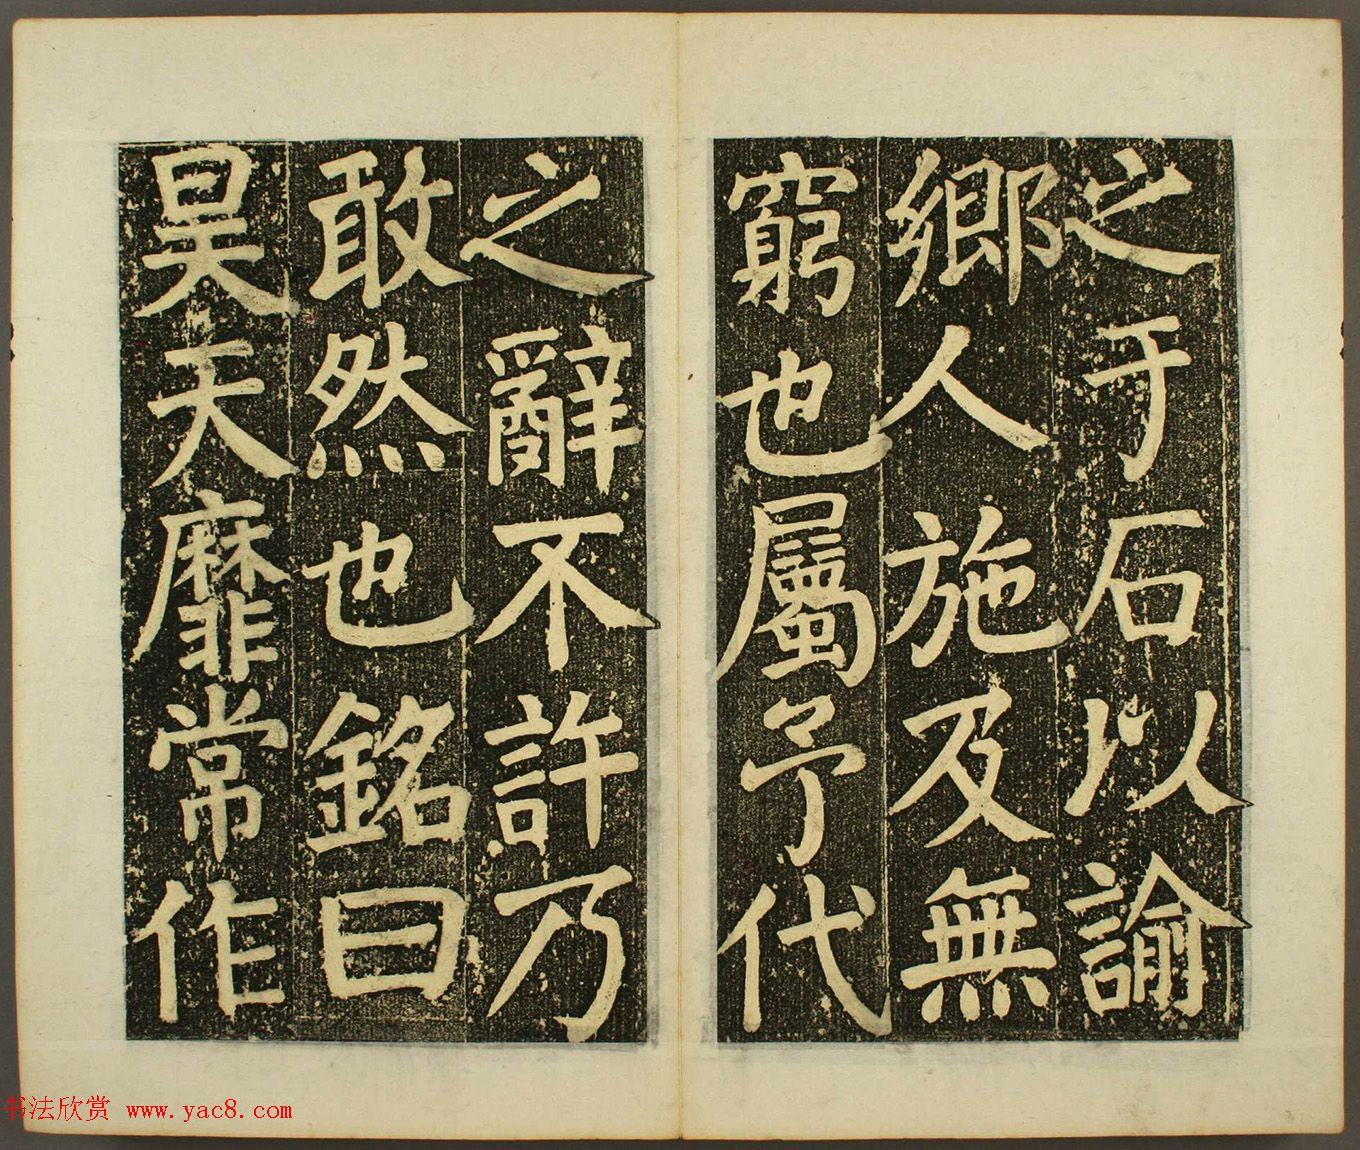 之于石以諭
鄉人施及無
窮也屬予代
之辭不許乃
敢然也銘曰
昊天靡常作
书法欣赏 www.yac8.com